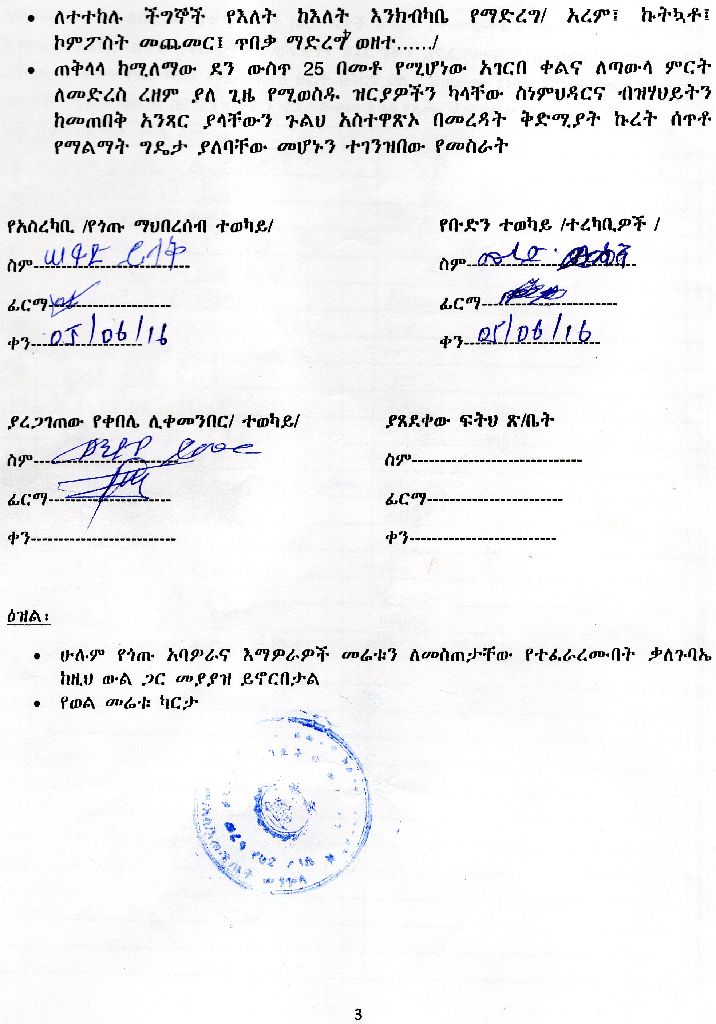 • ለተተከሉ ችግኞች የእለት ከእለት እንክብካቤ የማድረግ/ አረም፣ ኩትኳቶ፤
ኮምፖስት መጨመር፤ ጥበቃ ማድረግ ወዘተ....../
• ጠቅላላ ከሚለማው ደን ውስጥ 25 በመቶ የሚሆነው አገርበ ቀልና ለጣውላ ምርት
ለመድረስ ረዘም ያለ ጊዜ የሚወስዱ ዝርያዎችን ካላቸው ስነምህዳርና ብዝሃህይትን
ከመጠበቅ አንጻር ያላቸውን ጉልህ አስተዋጽኦ በመረዳት ቅድሚያት ኩረት ሰጥቶ
የማልማት ግዴታ ያለባቸው መሆኑን ተገንዝበው የመስራት
የአስረካቢ /የጎጡ ማህበረሰብ ተወካይ/
ስም
ፊርማ
ቀን 05/06/16
የቡድን ተወካይ /ተረካቢዎች /
ስም
ፊርማ
ቀን 05/06/16
ያረጋገጠው የቀበሌ ሊቀመንበር/ ተወካይ/
ስም
ፊርማ
ቀን--------------------------
ያጸደቀው ፍትህ ጽ/ቤት
ስም-------------------------------
ፊርማ-------------------------
ቀን---------------------------
ዕዝል፡
• ሁሉም የጎጡ አባዎራና እማዎራዎች መሬቱን ለመስጠታቸው የተፈራረሙበት ቃለጉባኤ
ከዚህ ውል ጋር መያያዝ ይኖርበታል
• የወል መሬቱ ካርታ
3